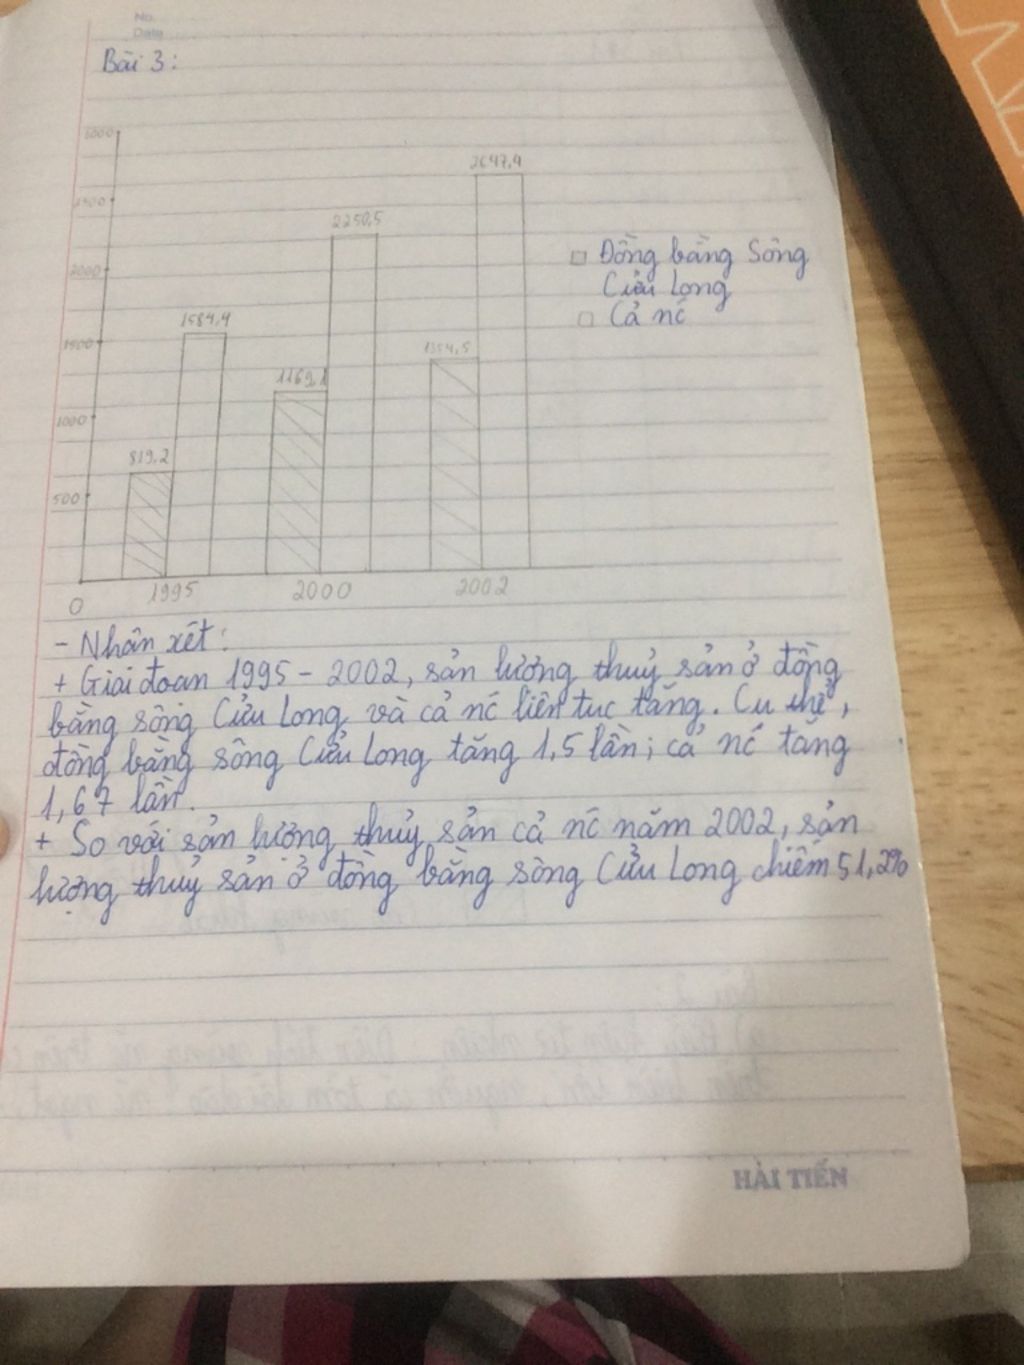 No.
Date
Bài 3:
3000
2647,4
2500
2250,5
2000
Đồng bằng Sông
Cửu Long
Cả nć
1584,4
1500
1354,5
1169,1
1000
819,2
500
0
1995
2000
2002
- Nhận xét:
+ Giai đoạn 1995 - 2002, sản lượng thuỷ sản ở đồng
bằng sông Cửu Long và cả nć liên tục tăng. Cụ thể,
đồng bằng sông Cửu Long tăng 1,5 lần; cả nć tăng
1,67 lần.
+ So với sản lượng thuỷ sản cả nć năm 2002, sản
lượng thuỷ sản ở đồng bằng sông Cửu Long chiếm 51,2%
HẢI TIẾN